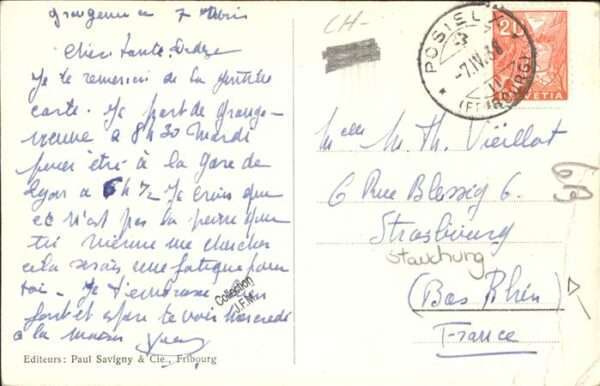 grangeneuve 7 Avril
Chère Tante
Je te remercie de la gentille
carte. Je part de Grange-
neuve a 8h30 Mardi
pour être à la gare de
a 6h½ Je crois que
ce n'est pas la peine que
tu vienne me chercher
cela serais une fatigue pour
toi. Je t'embrasse
fort et te vois Mercredi
à la maison
Editeurs: Paul Savigny & Cie., Fribourg
Collection
J.F.M.
CH-
POSIEUX
-7.IV.38
(FRIBOURG)
20
HELVETIA
Melle M. Th. Vieillot
6 Rue Blessig 6.
Strasbourg
Stauchung
(Bas Rhin)
France